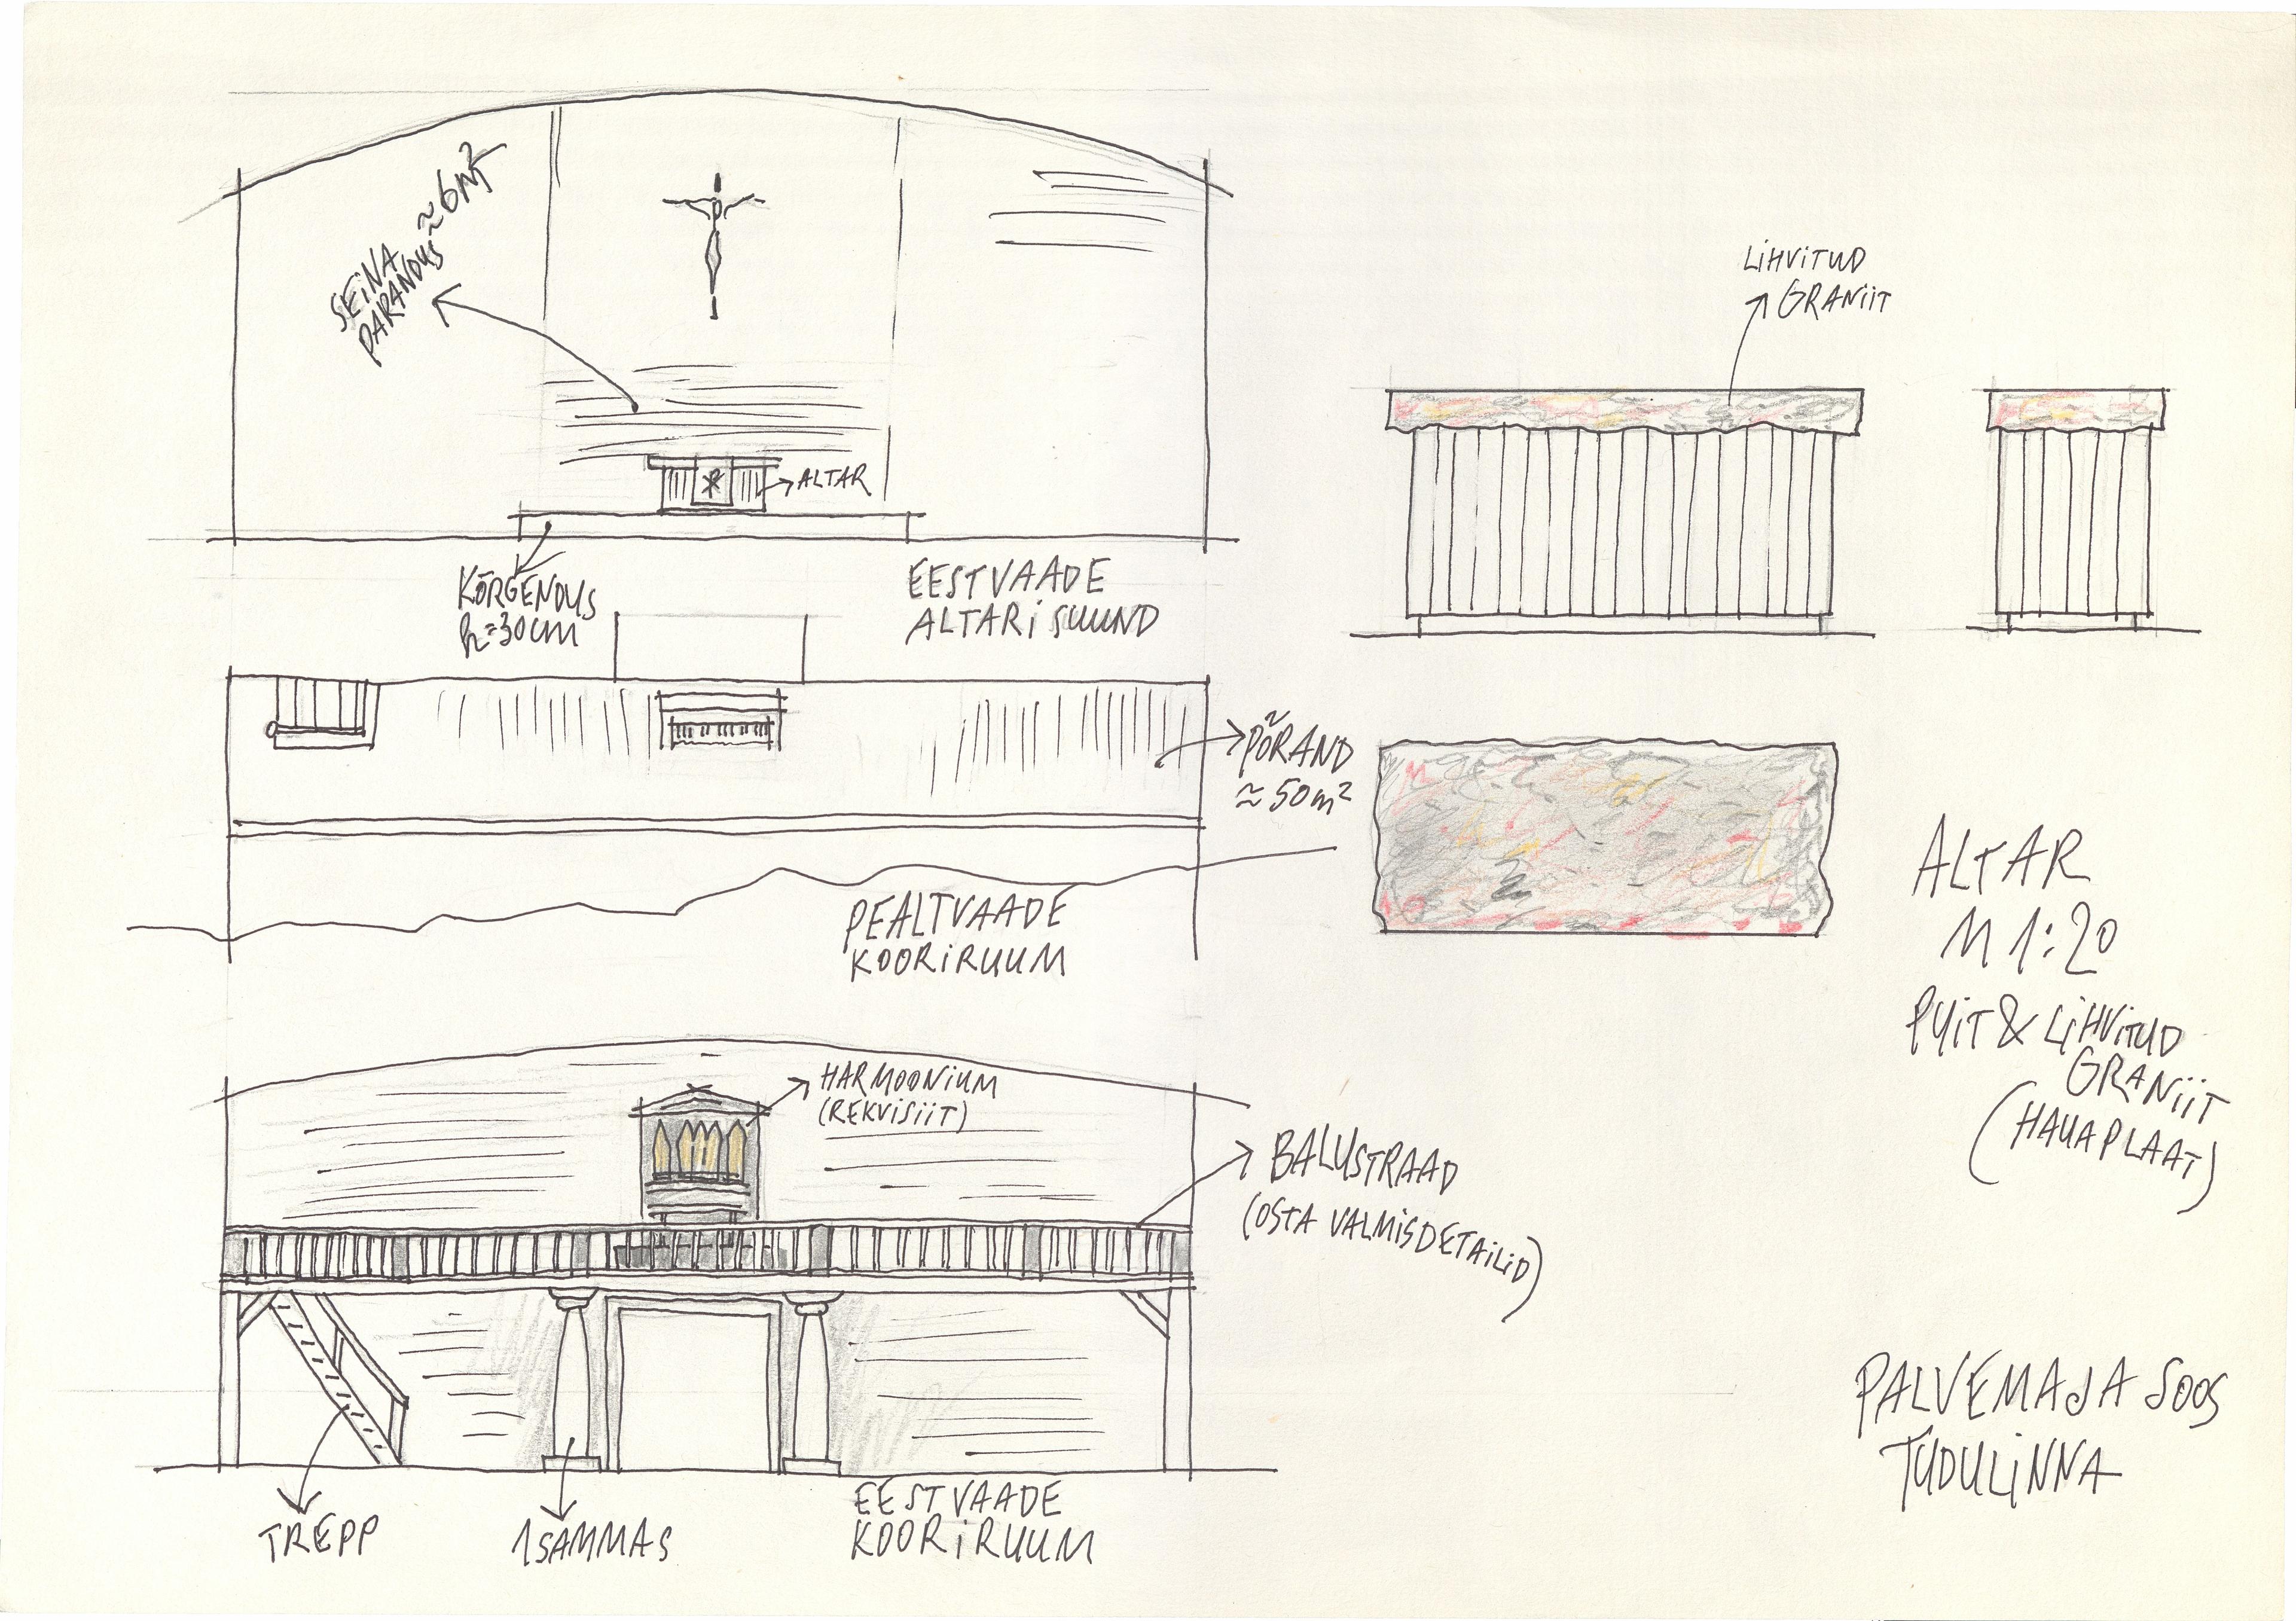 SEINA
PARANDUS ≈6m²
ALTAR
KÕRGENDUS
h=30cm
EESTVAADE
ALTARI SUUND
LIHVITUD
GRANIIT
PÕRAND
≈50m²
PEALTVAADE
KOORIRUUM
ALTAR
M 1:20
PUIT & LIHVITUD
GRANIIT
(HAUAPLAAT)
HARMOONIUM
(REKVISIIT)
BALUSTRAAD
(OSTA VALMISDETAILID)
TREPP
1 SAMMAS
EESTVAADE
KOORIRUUM
PALVEMAJA SOOS
TUDULINNA